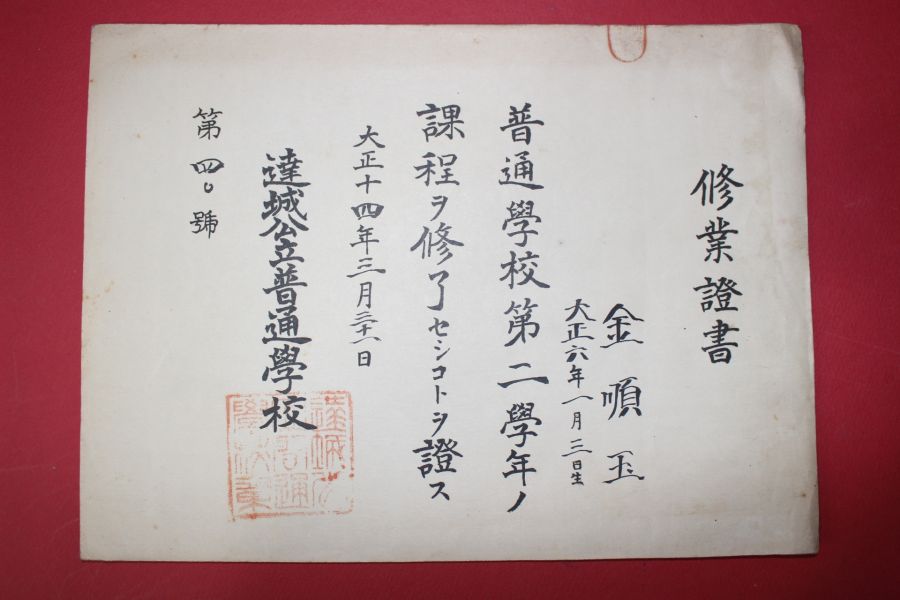 修業證書
金順玉
大正六年一月三日生
普通學校第二學年ノ
課程ヲ修了セシコトヲ證ス
大正十四年三月三十一日
達城公立普通學校
第四〇號